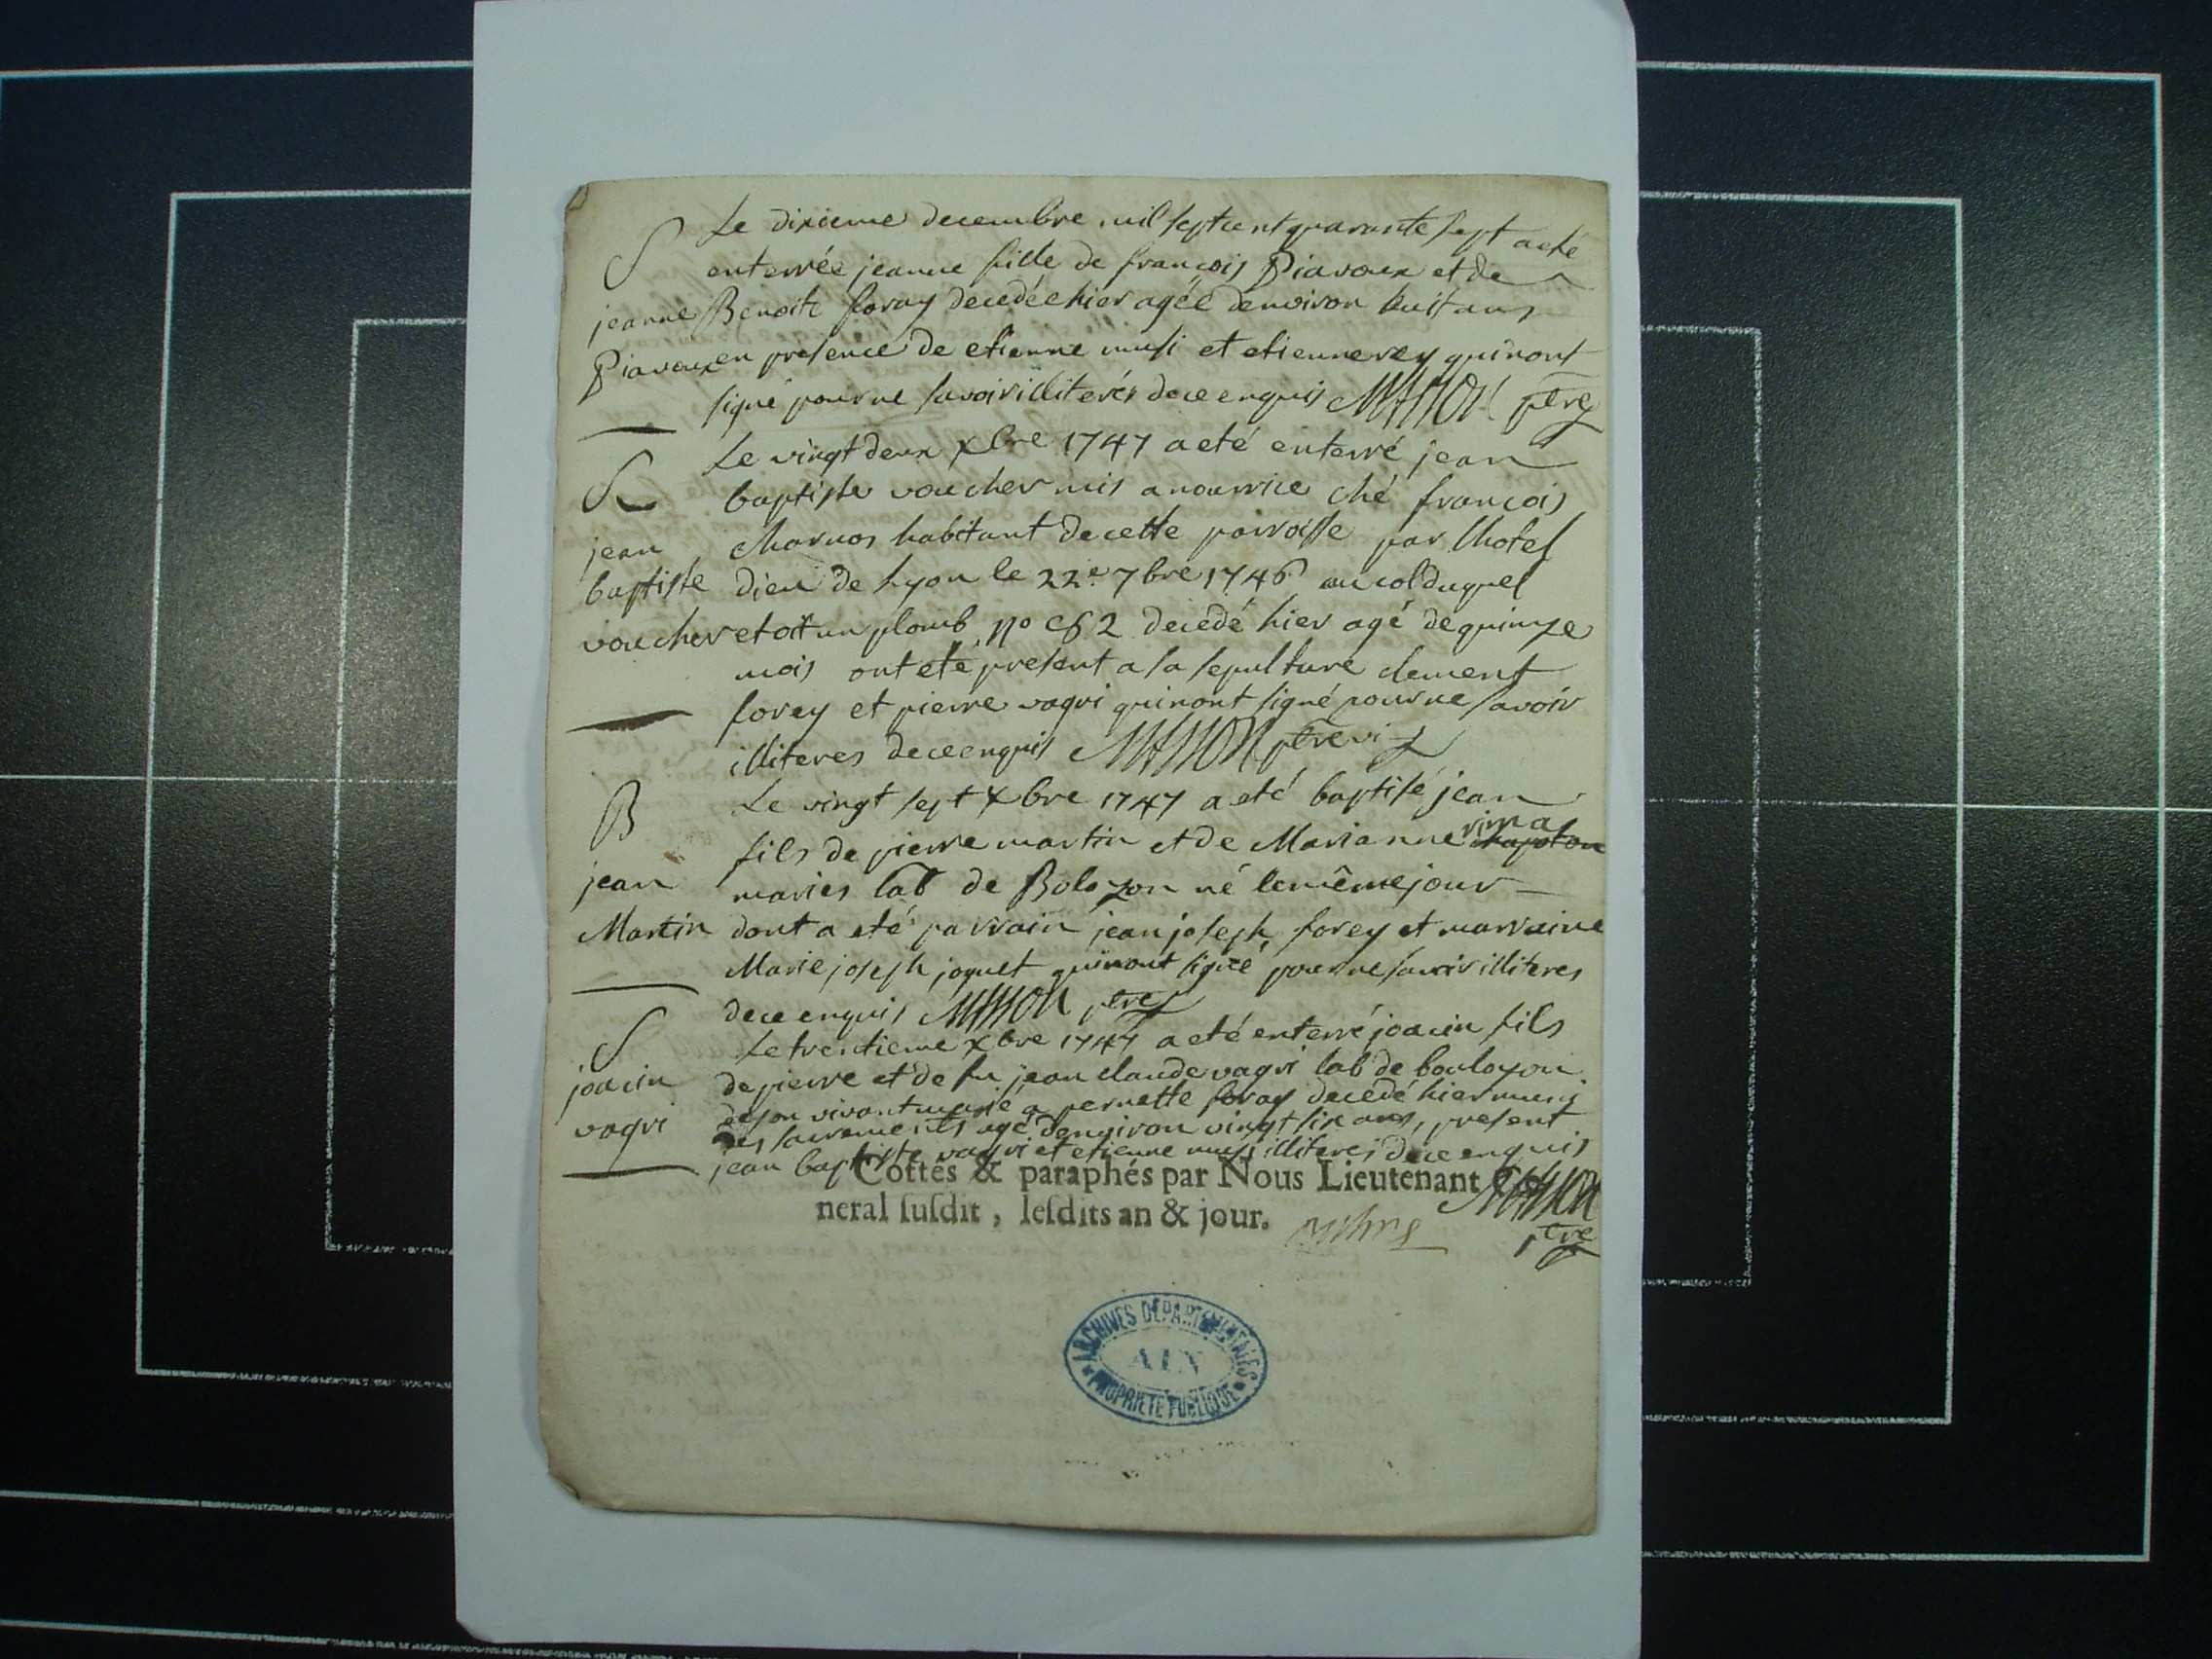 S
Le dixieme decembre mil septcent quarante sept a eté
enterrée jeanne fille de françois Piavoux et de
jeanne Benoite foray decedée hier agée denviron huit ans
Piavoux en presence de etienne musi et etienne rey qui nont
signé pour ne savoir illiterés de ce enquis MASSON ptre
S
Le vingt deux xbre 1747 a eté enterré jean
baptiste voucher mis a nourrice ché françois
jean Marnos habitant de cette parroisse par lhotel
baptiste dieu de Lyon le 22e 7bre 1746 au col duquel
voucher etoit un plomb no c62 decedé hier agé de quinze
mois ont eté present a sa sepulture clement
forey et pierre vagri qui nont signé pour ne savoir
illiteres de ce enquis MASSON ptre vi
B
Le vingt sept xbre 1747 a eté baptisé jean
fils de pierre martin et de Marianne
jean maries lab de Bolozon né le même jour
Martin dont a eté parrain jean joseph forey et marraine
Marie joseph joquet qui nont signé pour ne savoir illiteres
de ce enquis MASSON ptre
S
Le trentieme xbre 1747 a eté enterré joacin fils
joacin de pierre et de fu jean claude vagri lab de boulozon
vagri de son vivant marié a pernette foray decedé hier muni
des sacrements agé denviron vingt six ans, present
jean baptiste vagri et etienne musi illiteres de ce enquis
Cottés & paraphés par Nous Lieutenant Ge
neral ſuſdit, leſdits an & jour.
MASSON
ptre
ARCHIVES DEPARTEMENTALES
AIN
PROPRIETE PUBLIQUE